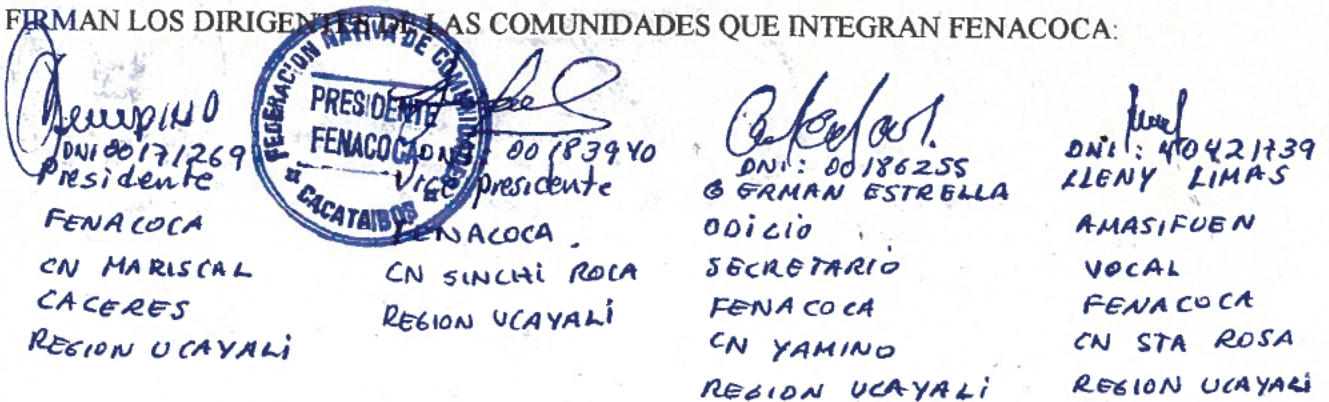 FIRMAN LOS DIRIGENTES DE LAS COMUNIDADES QUE INTEGRAN FENACOCA:
DNI 00171269
Presidente
FENACOCA
CN MARISCAL
CACERES
REGION UCAYALI
FEDERACION NATIVA DE COMUNIDADES
PRESIDENTE
FENACOCA
CACATAIBOS
DNI 00183940
Vice presidente
FENACOCA.
CN SINCHI ROCA
REGION UCAYALI
DNI: 00186255
GERMAN ESTRELLA
ODILIO
SECRETARIO
FENACOCA
CN YAMINO
REGION UCAYALI
DNI: 40421739
LLENY LIMAS
AMASIFUEN
VOCAL
FENACOCA
CN STA ROSA
REGION UCAYALI